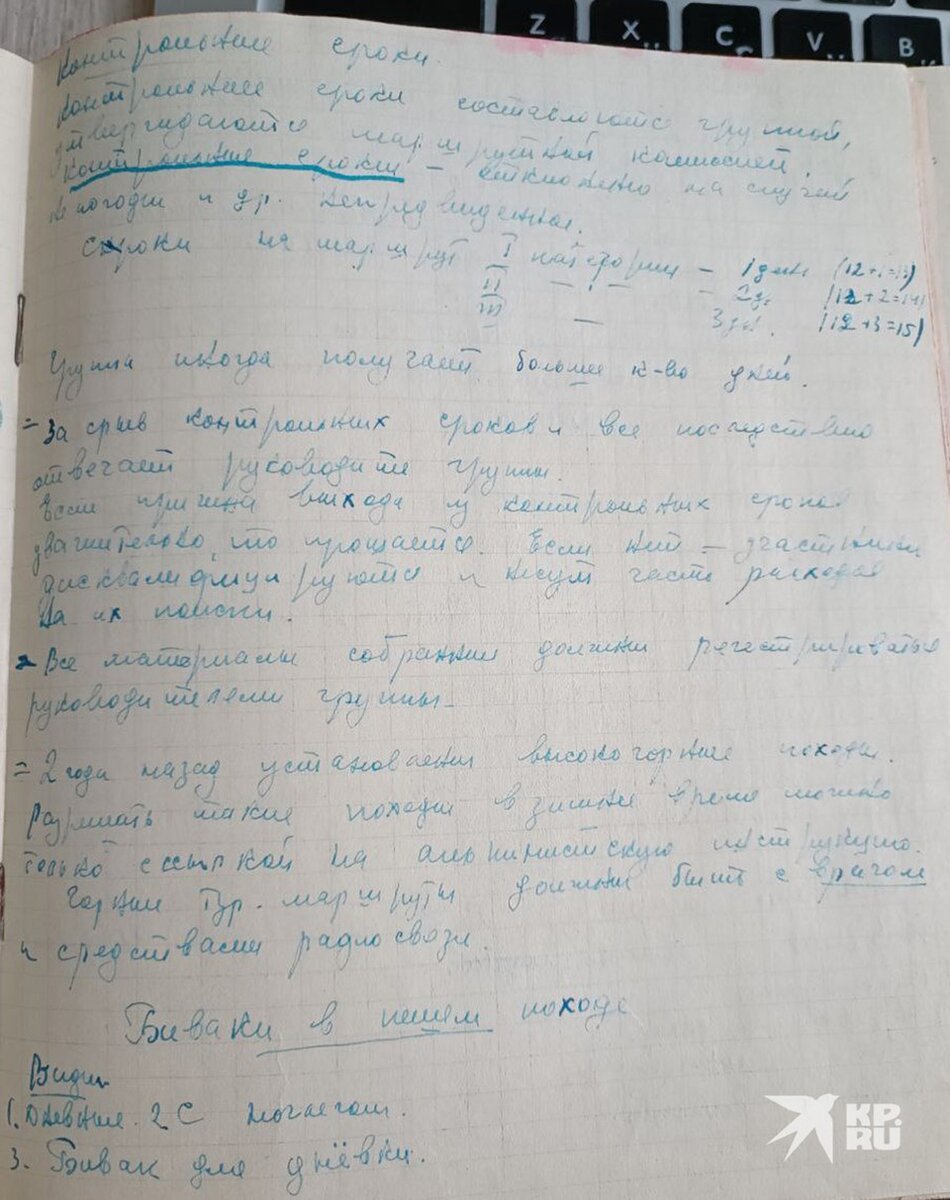 Z X C V B
Контрольные сроки.
Контрольные сроки составляются группой,
утверждаются маршрутной комиссией.
Контрольные сроки – отклонения на случай
непогоды и др. непредвиденных.
Сроки на маршрут I категории – 1 день (12+1=13)
II – " – – 2 д. (12+2=14)
III – 3 дн. (12+3=15)
Группа иногда получает больше к-во дней.
= За срыв контрольных сроков и все последствия
отвечает руководитель группы.
Если причина выхода из контрольных сроков
уважительна, то прощается. Если нет – участники
дисквалифицируются и несут часть расходов
на их поиски.
= Все материалы собранные должны регестрироваться
руководителем группы.
= 2 года назад установлены высокогорные походы.
Разрешать такие походы в зимнее время можно
только с ссылкой на альпинистскую инструкцию.
Горные Тур. маршруты должны быть с врачом
и средствами радиосвязи.
Биваки в пешем походе
Виды
1. Дневные. 2. С ночлегом.
3. Бивак для днёвки.
KP.RU